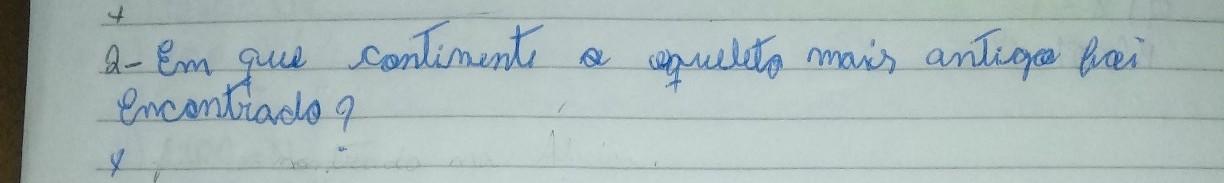 2- Em que continente o esqueleto mais antigo foi
encontrado?